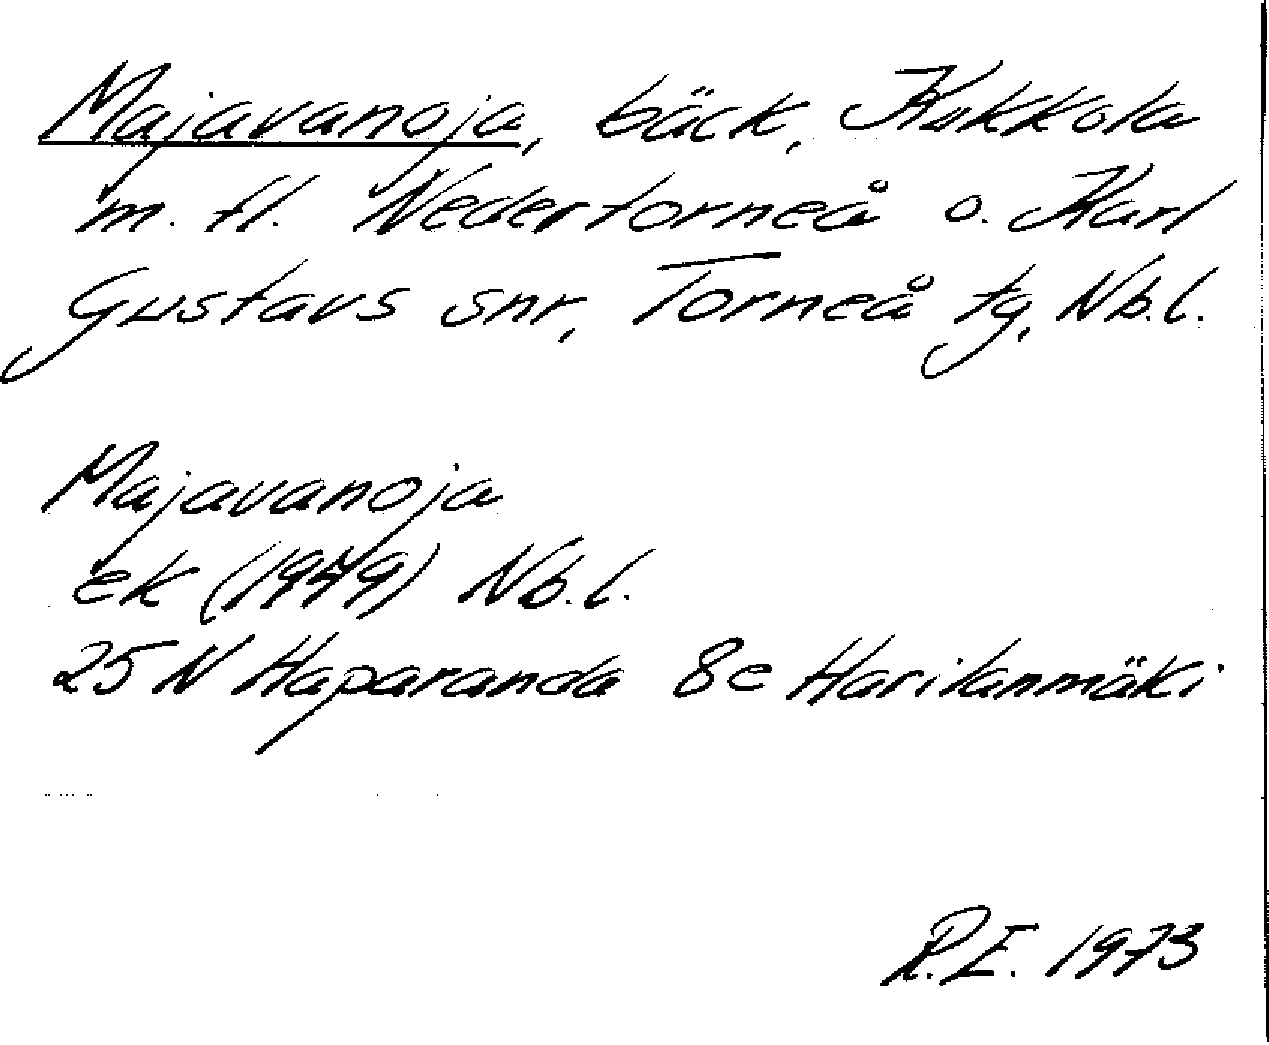 Majavanoja, bäck, Kukkola
m. fl. Nedertorneå o. Karl
Gustavs snr, Torneå tg, Nb.l.
Majavanoja
ek (1949) Nb.l.
25 N Haparanda 8e Harilanmäki
R.E. 1973